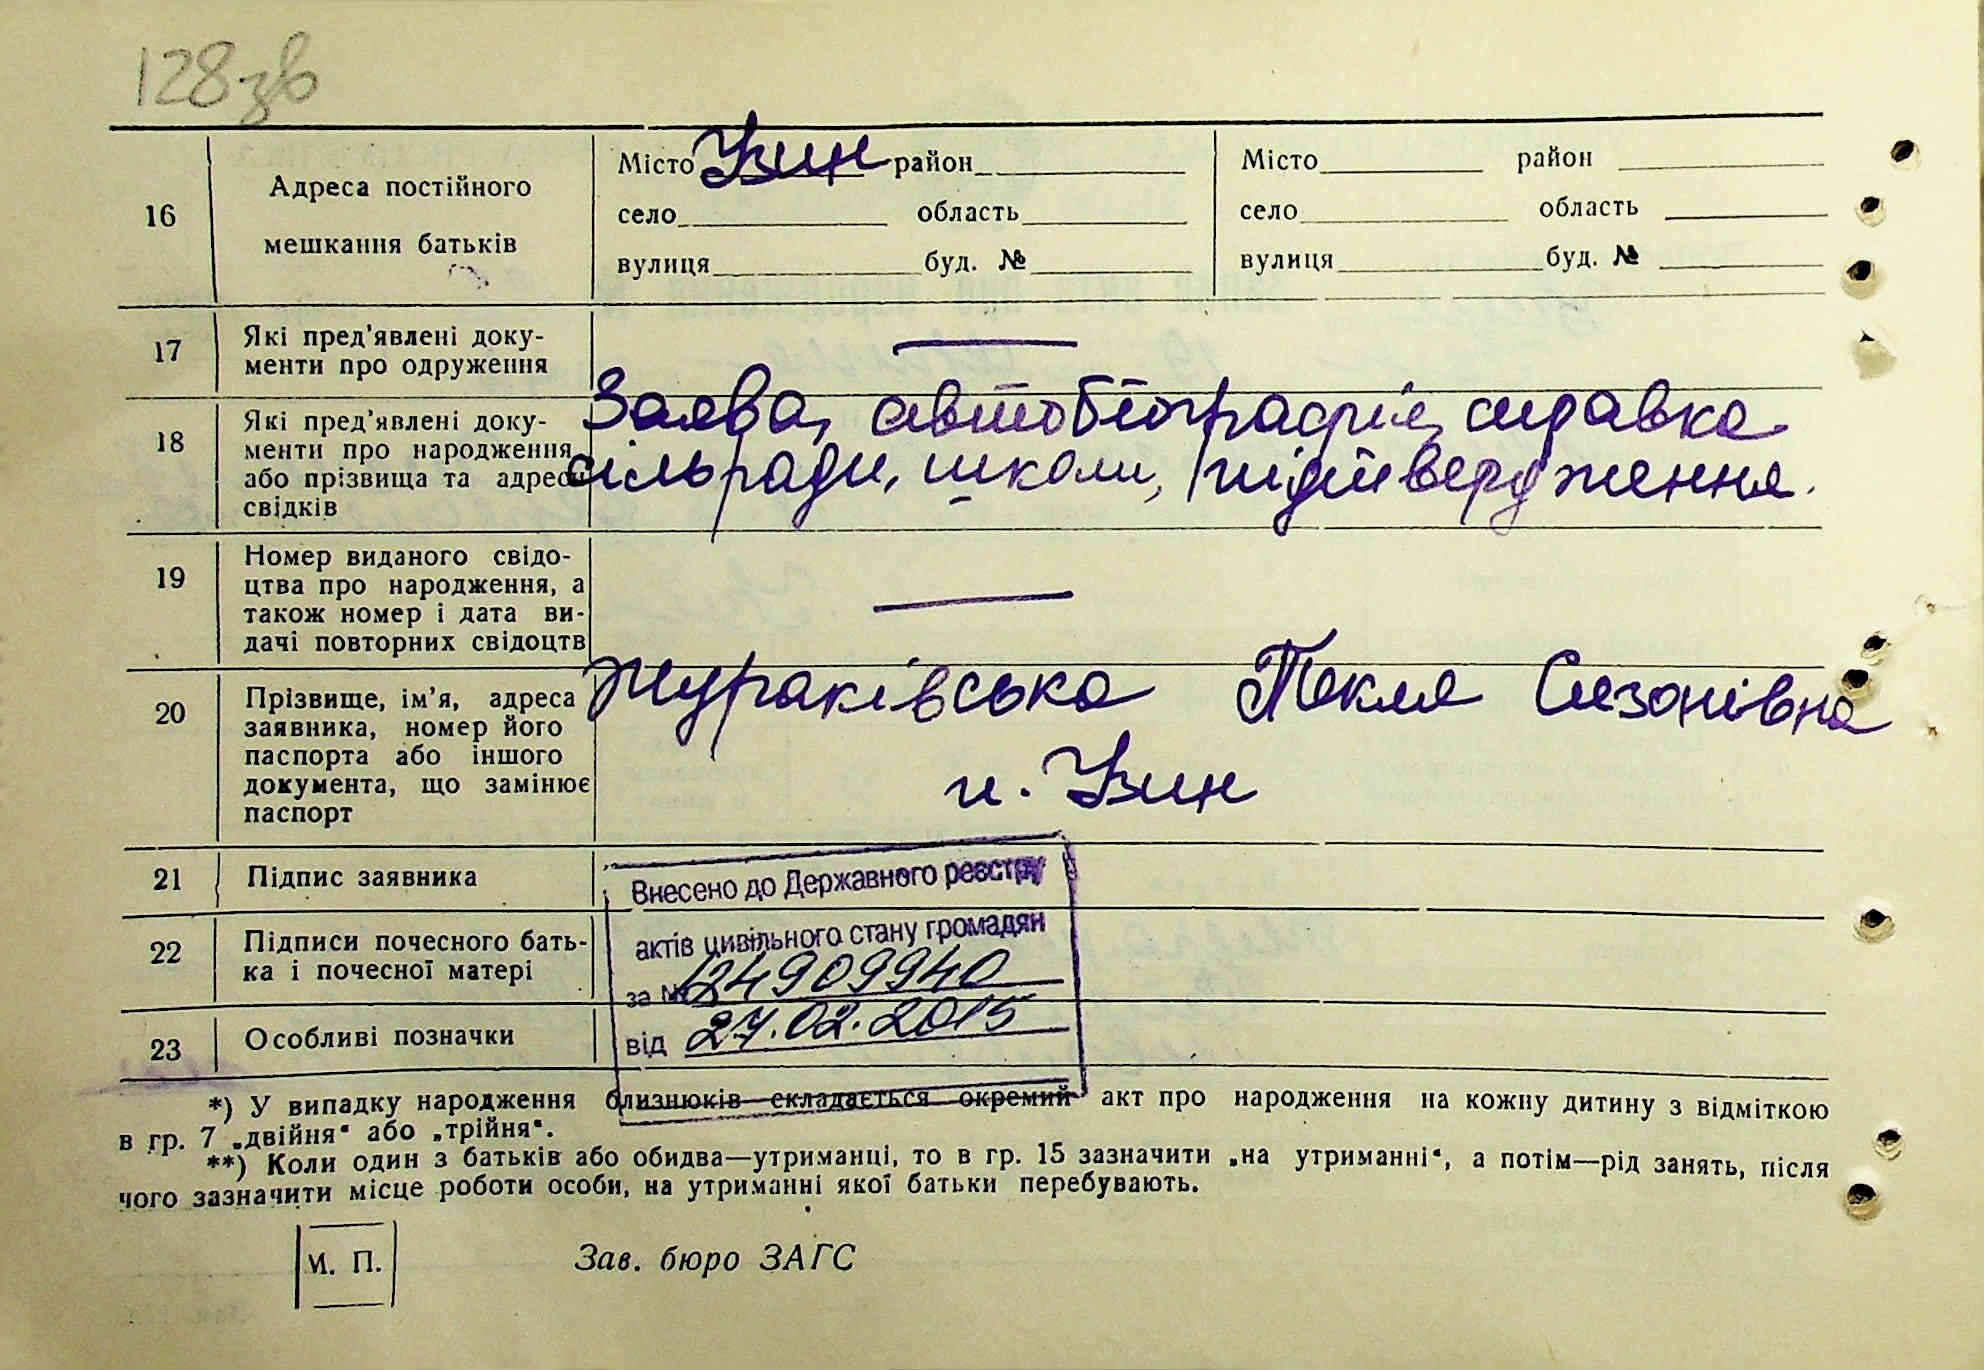 128зв
16
Адреса постійного
мешкання батьків
Місто Узин район
село область
вулиця буд. №
Місто район
село область
вулиця буд. №
17
Які пред'явлені доку-
менти про одруження
—
18
Які пред'явлені доку-
менти про народження
або прізвища та адреси
свідків
Заява, автобіографія, справка
сільради, школи, підтвердження.
19
Номер виданого свідо-
цтва про народження, а
також номер і дата ви-
дачі повторних свідоцтв
—
20
Прізвище, ім'я, адреса
заявника, номер його
паспорта або іншого
документа, що замінює
паспорт
Жураківська Текля Сизонівна
м. Узин
21
Підпис заявника
22
Підписи почесного бать-
ка і почесної матері
23
Особливі позначки
Внесено до Державного реєстру
актів цивільного стану громадян
за № 24909940
від 27.02.2015
*) У випадку народження близнюків складається окремий акт про народження на кожну дитину з відміткою
в гр. 7 „двійня“ або „трійня“.
**) Коли один з батьків або обидва—утриманці, то в гр. 15 зазначити „на утриманні“, а потім—рід занять, після
чого зазначити місце роботи особи, на утриманні якої батьки перебувають.
М. П.
Зав. бюро ЗАГС